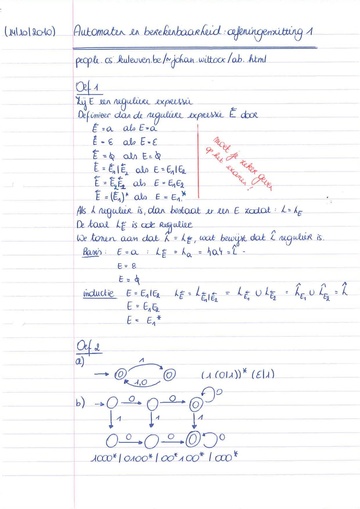 (14/10/2010) Automaten en berekenbaarheid: oefeningenzitting 1
people.cs.kuleuven.be/~johan.wittocx/ab.html
Oef 1
Zij E een reguliere expressie
Definieer dan de reguliere expressie Ê door
Ê = a als E = a
Ê = ε als E = ε
Ê = ϕ als E = ϕ
Ê = Ê₁|Ê₂ als E = E₁|E₂
Ê = Ê₂Ê₁ als E = E₁E₂
Ê = (Ê₁)* als E = E₁*
moet je zeker geven
op het examen!
Als L regulier is, dan bestaat er een E zodat: L = L_E
De taal L_Ê is ook regulier
We tonen aan dat L̂ = L_Ê, wat bewijst dat L̂ regulier is.
Basis: E = a : L_Ê = L_a = {a} = L̂
E = ε
E = ϕ
inductie E = E₁|E₂ L_Ê = L_Ê₁|Ê₂ = L_Ê₁ ∪ L_Ê₂ = L̂_E₁ ∪ L̂_E₂ = L̂
E = E₁E₂
E = E₁*
Oef 2
a) 1
1,0
(1(0|1))* (ε|1)
b) 0 0 0
1 1 1
0 0 0
1000* | 0100* | 00*100* | 000*